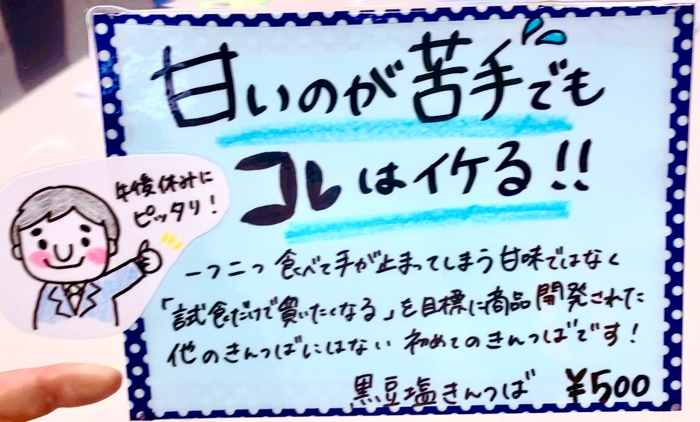 甘いのが苦手でも
コレはイケる!!
午後休みに
ピッタリ!
一つ二つ食べて手が止まってしまう甘味ではなく
「試食だけで買いたくなる」を目標に商品開発された
他のきんつばにはない 初めてのきんつばです!
黒豆塩きんつば ¥500